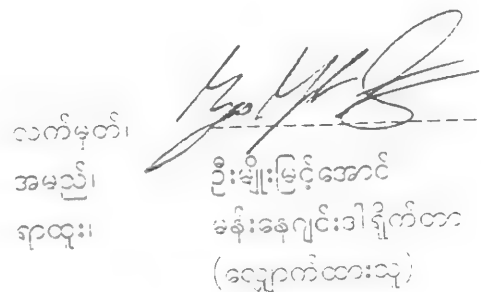 လက်မှတ်၊
အမည်၊ ဦးမျိုးမြင့်အောင်
ရာထူး၊ မန်းနေဂျင်းဒါရိုက်တာ
(လျှောက်ထားသူ)